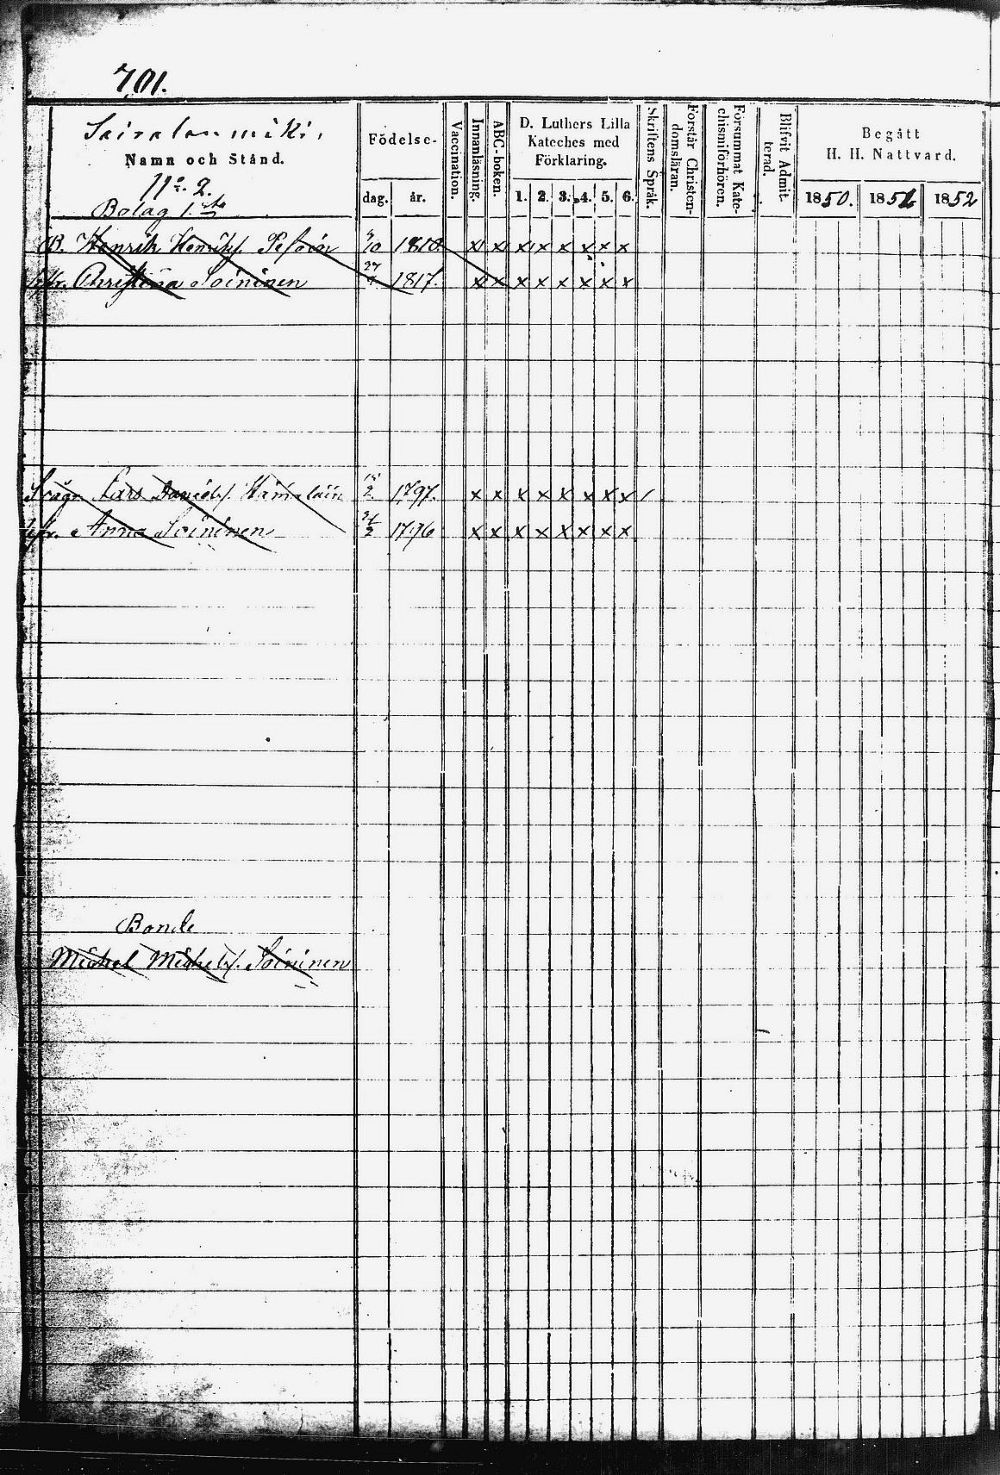 701.
Namn och Stånd.
No. 2.
Bolag 1.
Födelse-
dag. år.
Vaccination.
Innanläsning.
ABC-boken.
D. Luthers Lilla
Kateches med
Förklaring.
1. 2. 3. 4. 5. 6.
Skriftens Språk.
Förstår Christen-
domsläran.
Försummat Kate-
chismiförhören.
Blifvit Admit-
terad.
Begått
H. H. Nattvard.
1850. 1851 1852
B. Henrik Henriks. 10 1810. x x x x x x x x
Christina Soininen 27 1817. x x x x x x x x
Lars Davids. Hämäläin 2 1797. x x x x x x x x /
Anna Soininen 2 1796 x x x x x x x x
Bonde
Michel Michels. Soininen